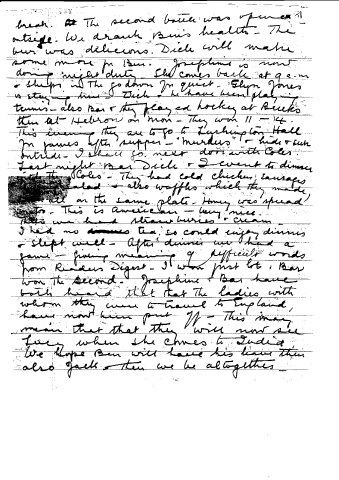 hear. The second batch was opened
outside. We drank Ben's health - The
beer was delicious. Dick will make
some more for Ben. Josephine is now
doing night duty. She comes back at 9 a.m
& sleeps in the godown for quiet. Elyn Jones
is staying with Dick & have been playing
tennis - also Bar & they played hockey at Becks
then at Hebron on Mon - They won 11 - 4.
This evening they are to go to Lushington Hall
for games after supper - "Murders" & hide & seek
outside - I shall go next door with Coles.
Last night Bar Dick & I went to dinner
with the Coles - They had cold chicken, sausages
salad & also waffles which they made
all on the same plate - Honey was spread
This is American - very nice.
we had strawberries & cream.
I had no tea, so could enjoy dinner
& slept well - After dinner we had a
game - giving meaning of difficult words
from Readers Digest. I won first lot, & Bar
won the second - Josephine & Bar have
both heard that the ladies with
whom they were to travel to England,
have now been put off - This may
mean that they will now see
Lucy when she comes to India
We hope Ben will have his leave then
also Jack & then we be altogether -